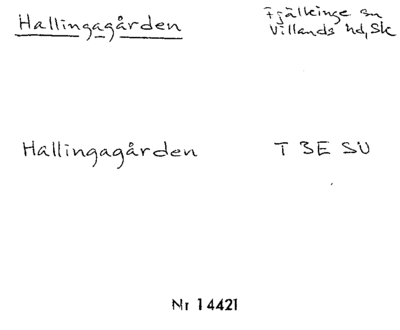 Hallingagården
Fjälkinge sn
Villands hd, Sk
Hallingagården T 3E SU
Nr 14421